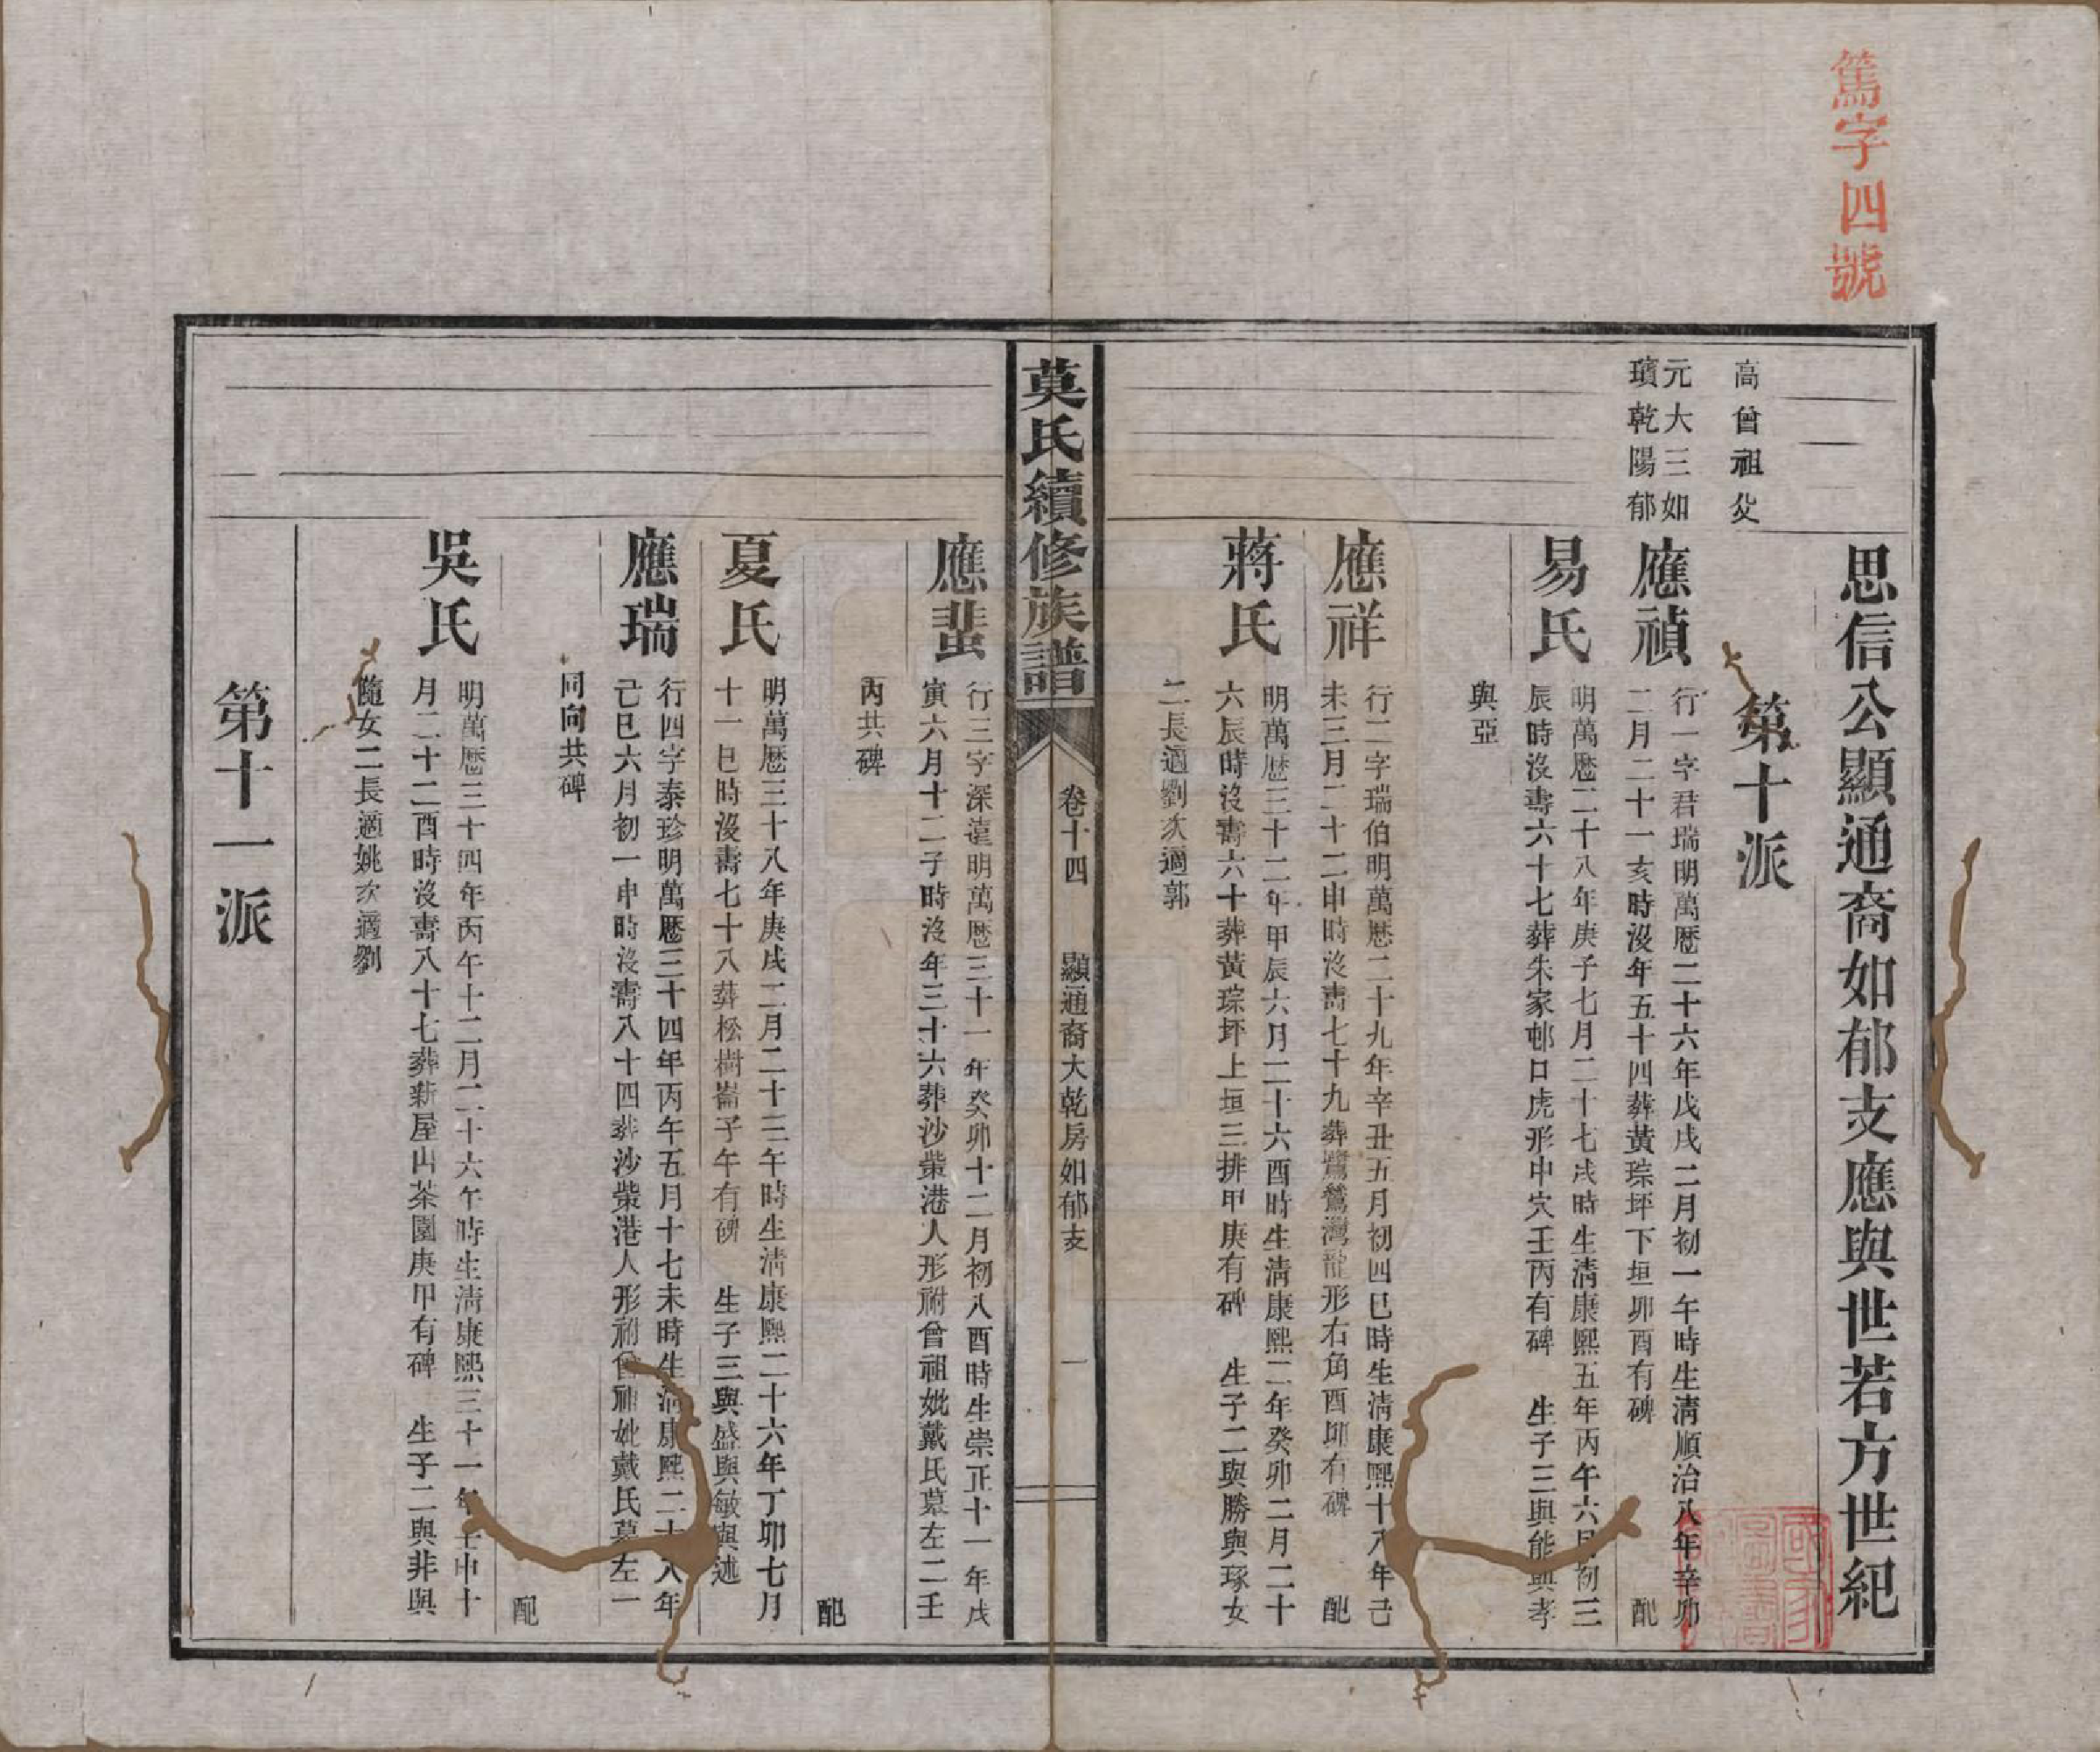 篤字四號
思信公顯通裔如郁支應與世若方世紀
第十派
高曾祖父
元大三如
璸乾陽郁
應禎
行一字君瑞明萬歷二十六年戊戌二月初一午時生清順治八年辛卯
二月二十一亥時沒年五十四葬黃琮坪下垣卯酉有碑 配
易氏
明萬歷二十八年庚子七月二十七戌時生清康熙五年丙午六月初三
辰時沒壽六十七葬朱家邨口虎形中穴壬丙有碑 生子三與能與孝
與亞
應祥
行二字瑞伯明萬歷二十九年辛丑五月初四巳時生清康熙十八年己
未三月二十二申時沒壽七十九葬鷺鶿灣龍形右角酉卯有碑 配
蔣氏
明萬歷三十二年甲辰六月二十六酉時生清康熙二年癸卯二月二十
六辰時沒壽六十葬黃琮坪上垣三排甲庚有碑 生子二與勝與琢女
二長適劉次適郭
莫氏續修族譜
卷十四 顯通裔大乾房如郁支 一
應蜚
行三字深遠明萬歷三十一年癸卯十二月初八酉時生崇正十一年戊
寅六月十二子時沒年三十六葬沙柴港人形祔曾祖妣戴氏墓左二壬
丙共碑 配
夏氏
明萬歷三十八年庚戌二月二十三午時生清康熙二十六年丁卯七月
十一巳時沒壽七十八葬松樹崙子午有碑 生子三與盛與敏與述
應瑞
行四字泰珍明萬歷三十四年丙午五月十七未時生清康熙二十八年
己巳六月初一申時沒壽八十四葬沙柴港人形祔曾祖妣戴氏墓左一
同向共碑 配
吳氏
明萬歷三十四年丙午十二月二十六午時生清康熙三十一年壬申十
月二十二酉時沒壽八十七葬新屋山茶園庚甲有碑 生子二與非與
隨女二長適姚次適劉
第十一派